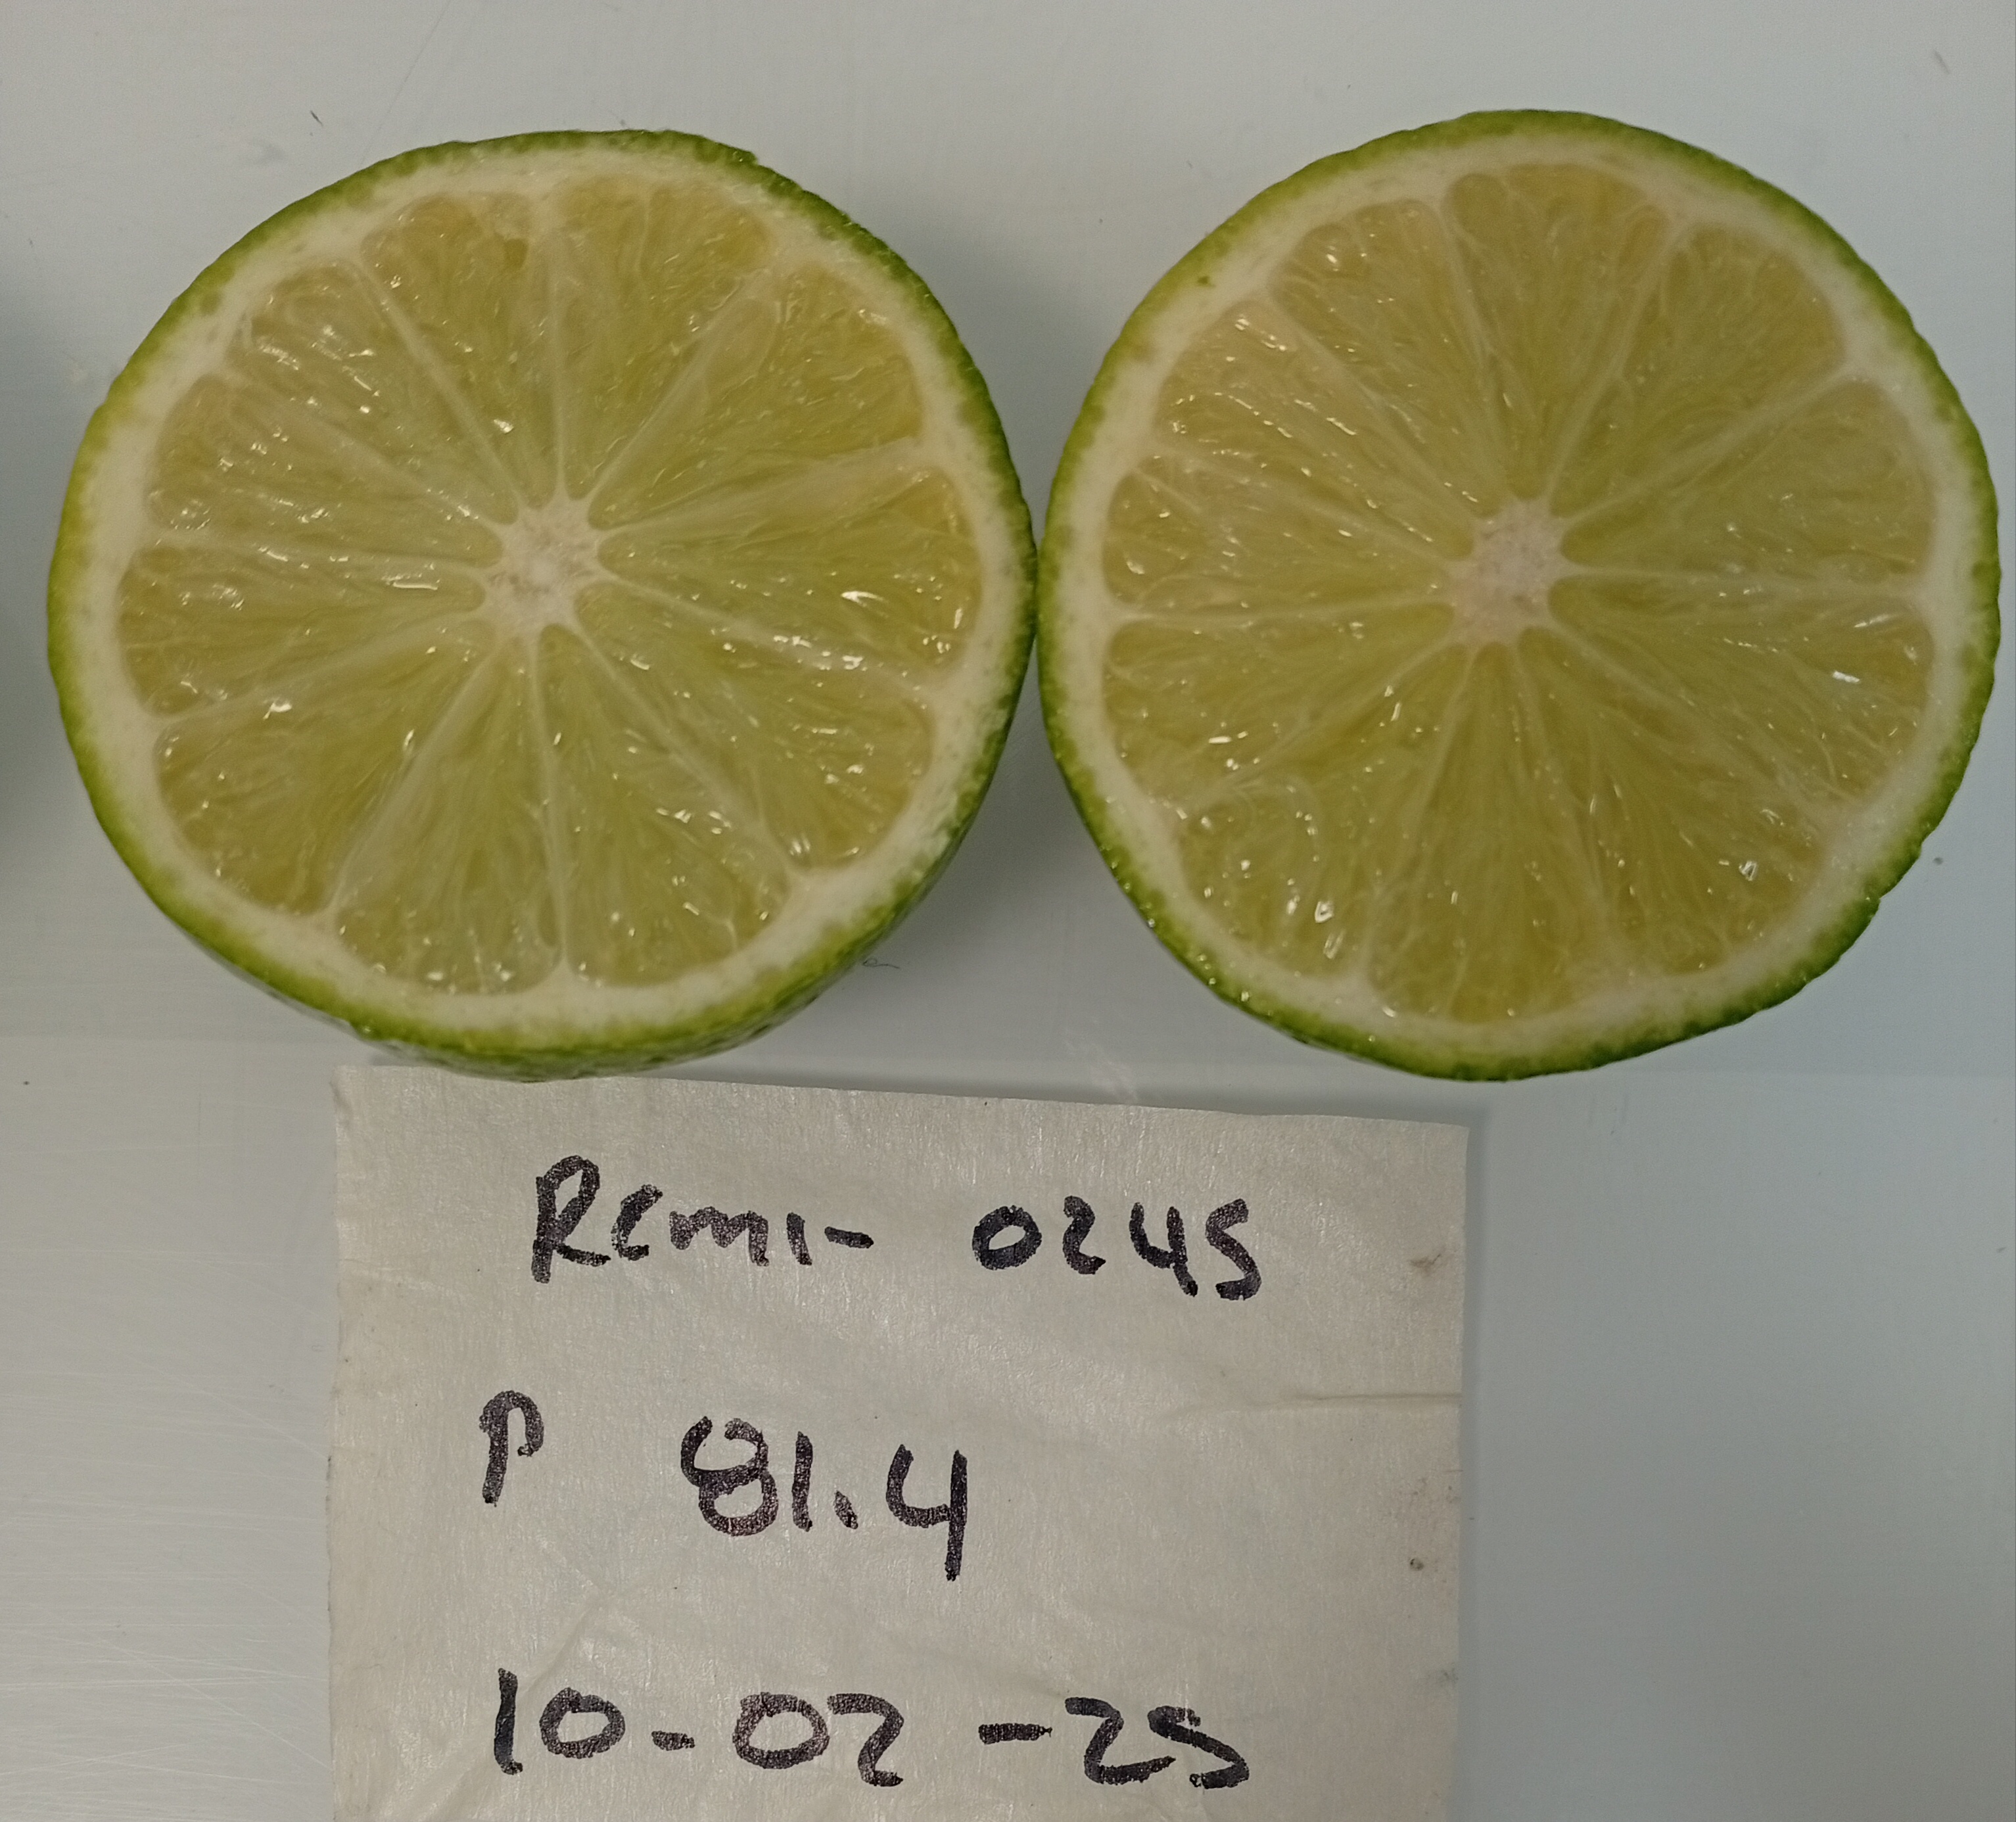 Remi- 0245
P 81.4
10-02-25